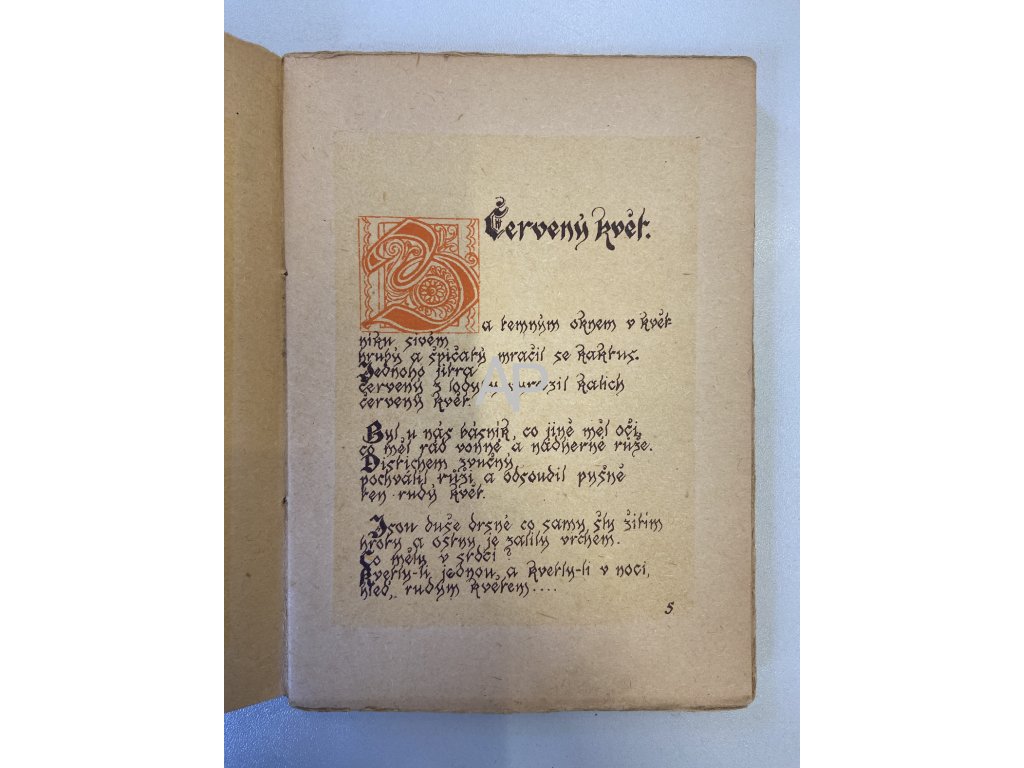 Červený květ.
Za temným oknem v květ-
níku sivém
hrubý a špičatý mračil se kaktus.
Jednoho jitra
červený z lodyhy vyrazil kalich
červený květ.
Byl u nás básník, co jiné měl oči,
co měl rád vonné a nádherné růže.
Distichem zvučným
pochválil růži a odsoudil pyšně
ten rudý květ.
Jsou duše drsné co samy šly žitím
hroty a ostny je zalily vrchem.
Co měly v srdci?
Kvetly-li jednou, a kvetly-li v noci,
hleď, rudým květem....
5
AP